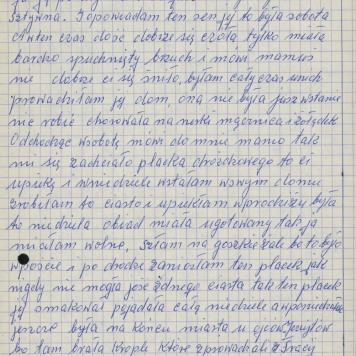 sztywna. I opowiadam ten sen jej to była sobota
w ten czas dość dobrze się czuła tylko miała
bardzo spuchnięty brzuch i mówi mamuś
nie dobrze ci się śniło, byłam cały czas u nich
prowadziłam jej dom, ona nie była już w stanie
nic robić chorowała na nerki wątroba i żołądek
Odchodząc w sobotę mówi do mnie mamo tak
mi się zachciało placka drożdżowego to ci
upiekę i w niedziele wstałam w swym domu
zrobiłam to ciasto i upiekłam w prodiżu była
to niedziela obiad miała ugotowany tak ja
miałam wolne, szłam na gorzkie żale bo to było
w poście i po drodze zaniosłam ten placek, jak
nigdy nie mogła jeść żadnego ciasta tak ten placek
jej smakował pojadała całą niedziele a w poniedziałek
jeszcze była na końcu miasta u
bo tam brała krople które sprowadzali z